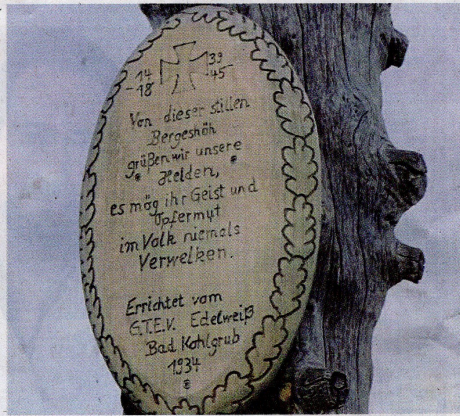 14 39
-18 -45
Von dieser stillen
Bergeshöh
grüßen wir unsere
Helden,
es mög ihr Geist und
Opfermut
im Volk niemals
Verwelken.
Errichtet vom
G.T.E.V. Edelweiß
Bad Kohlgrub
1934